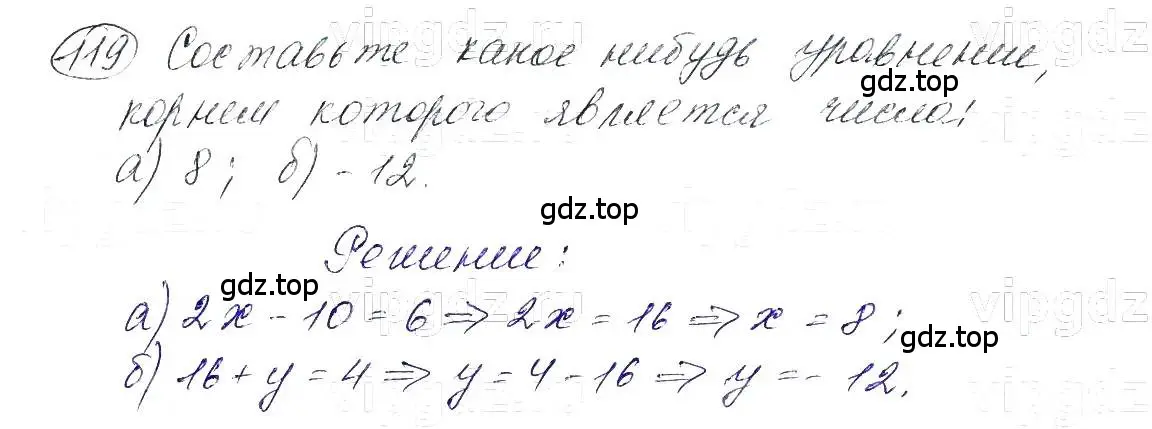 119 Составьте какое нибудь уравнение,
корнем которого является число:
а) 8; б) -12.
Решение:
а) 2x - 10 = 6 => 2x = 16 => x = 8;
б) 16 + y = 4 => y = 4 - 16 => y = - 12.
gdz.top
gdz.top
gdz.top
gdz.top
vipgdz
vipgdz
vipgdz
vipgdz